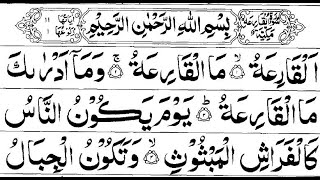 بِسْمِ اللهِ الرَّحْمٰنِ الرَّحِيْمِ
اَلْقَارِعَةُ ۙ مَا الْقَارِعَةُ ۚ وَمَاۤ اَدْرٰىكَ
مَا الْقَارِعَةُ ؕ يَوْمَ يَكُوْنُ النَّاسُ
كَالْفَرَاشِ الْمَبْثُوْثِ ۙ وَتَكُوْنُ الْجِبَالُ